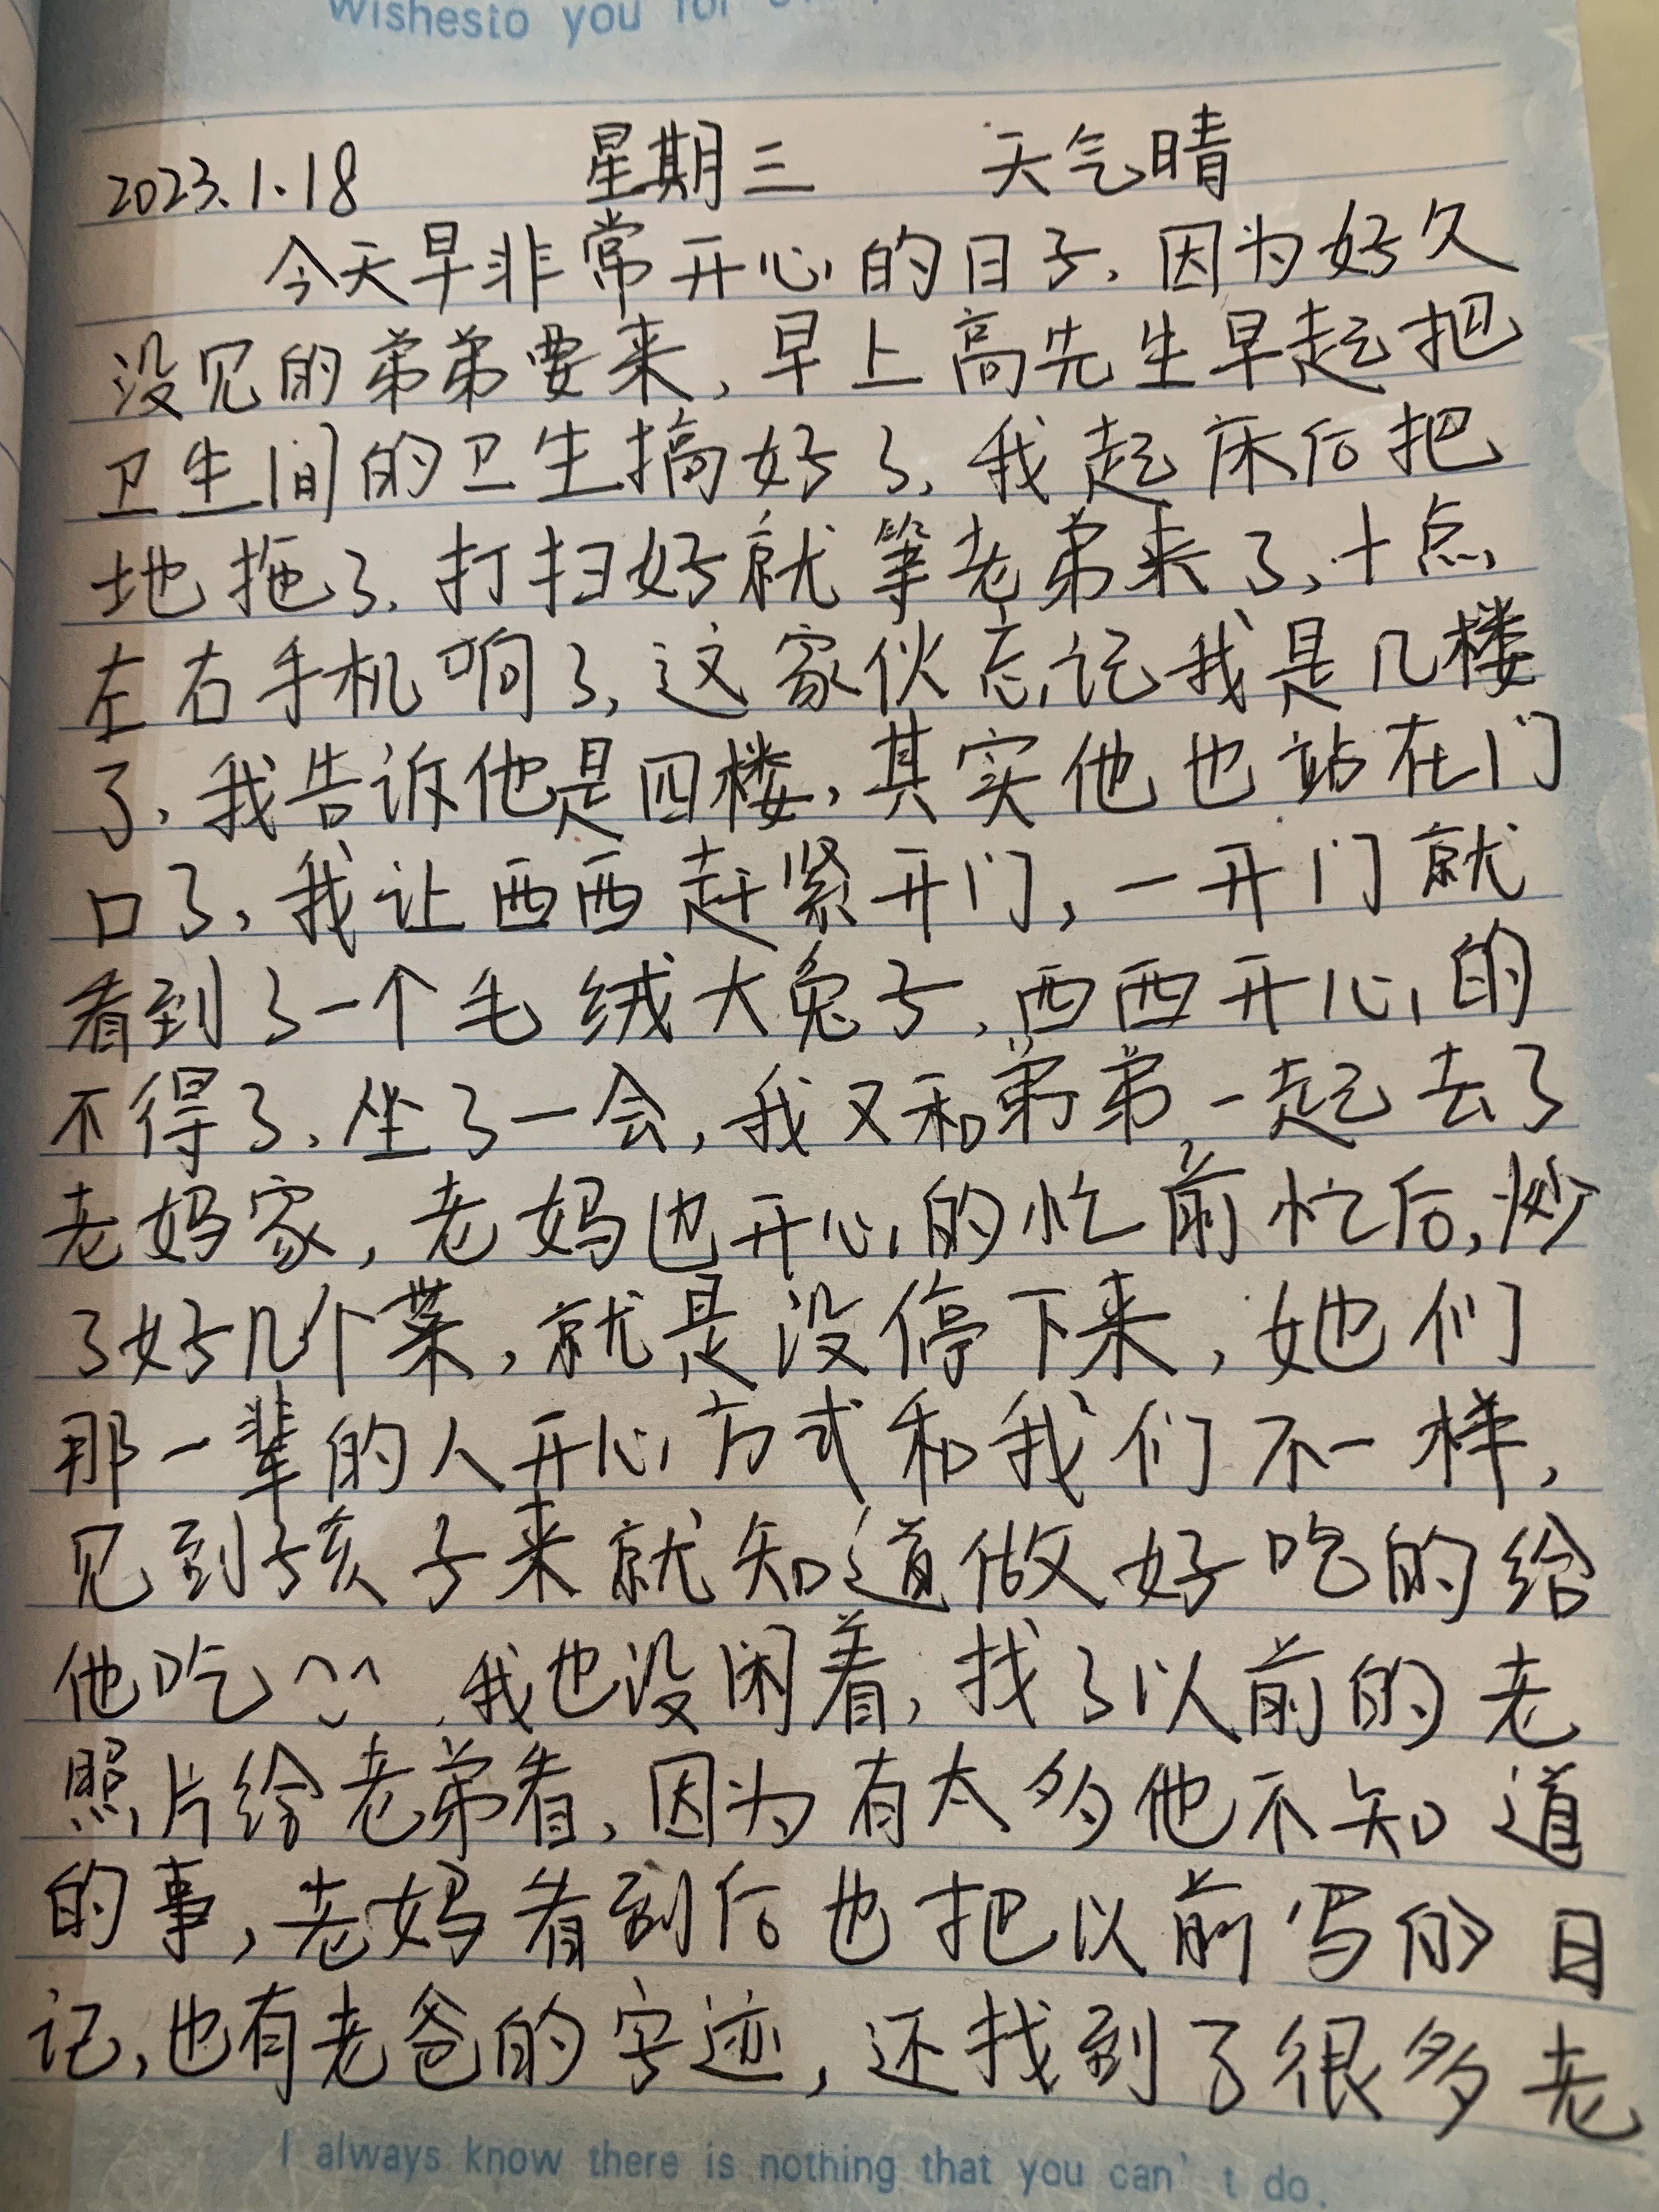 Wishesto you for
2023.1.18 星期三 天气晴
今天早非常开心的日子,因为好久
没见的弟弟要来,早上高先生早起把
卫生间的卫生搞好了,我起床后把
地拖了,打扫好就等老弟来了,十点
左右手机响了,这家伙忘记我是几楼
了,我告诉他是四楼,其实他也站在门
口了,我让西西赶紧开门,一开门就
看到了一个毛绒大兔子,西西开心的
不得了,坐了一会,我又和弟弟一起去了
老妈家,老妈也开心的忙前忙后,炒
了好几个菜,就是没停下来,她们
那一辈的人开心方式和我们不一样,
见到孩子来就知道做好吃的给
他吃^⌣^,我也没闲着,找了以前的老
照片给老弟看,因为有太多他不知道
的事,老妈看到后也把以前写的日
记,也有老爸的字迹,还找到了很多老
I always know there is nothing that you can't do.